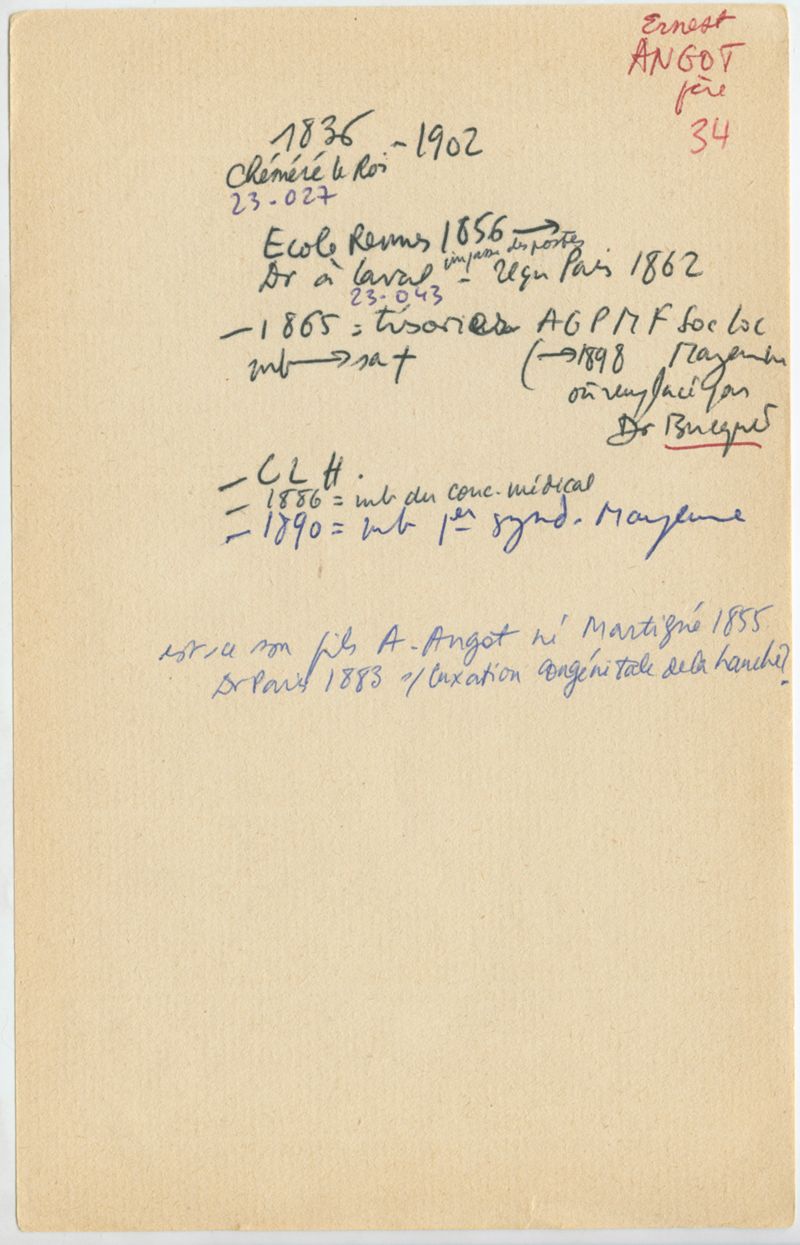 Ernest
ANGOT
père
34
1836 - 1902
Chéméré le Roi
23-027
Ecole Rennes 1856 →
impasse des postes
Dr à Laval - reçu Paris 1862
23-043
- 1865 = trésorier AGPMF Soc loc
mb → sa + (→ 1898 Mayenne
où remplacé par
Dr Bucquet
- CLH.
- 1886 = mb du conc. médical
- 1890 = mb 1er synd. Mayenne
est-ce son fils A. Angot né Martigné 1855
Dr Paris 1883 s/ luxation congénitale de la hanche?